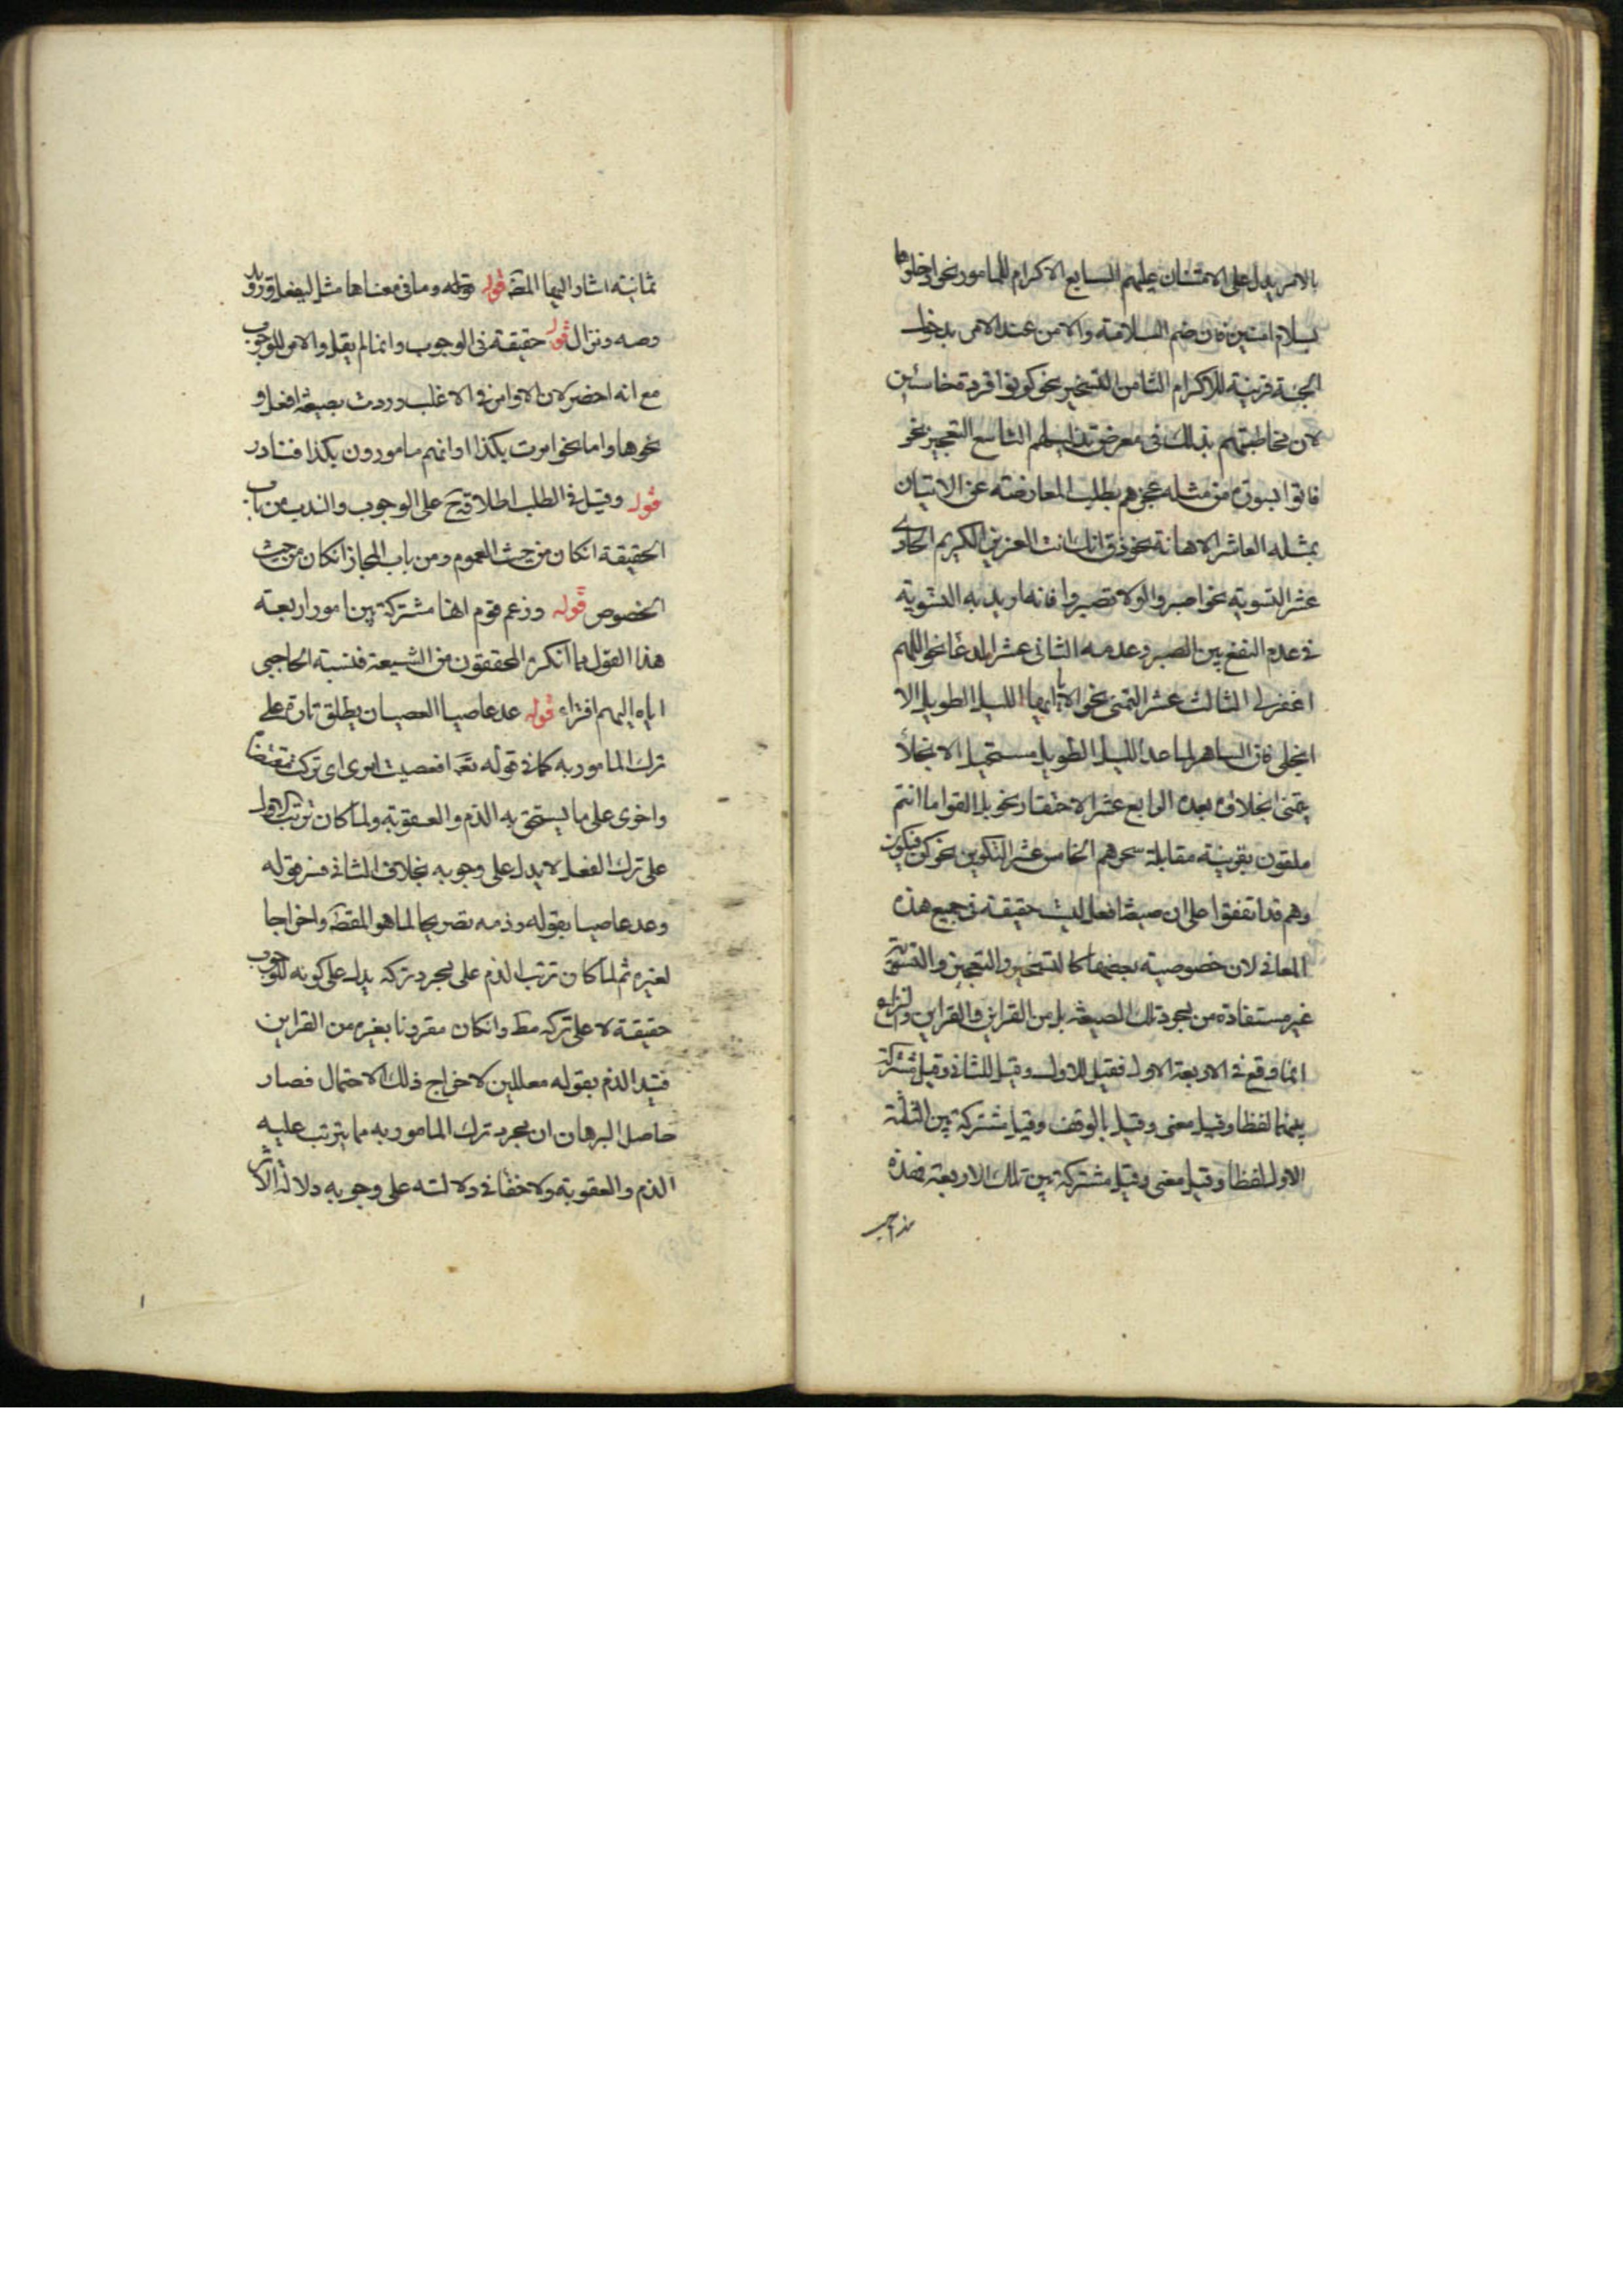 بالامر يدل على الامتنان عليهم السابع الاكرام للمامور نحو ادخلوها
بسلام امنين فان ضم السلامة والامن عند الامر بدخول
الجنة قرينة للاكرام الثامن التسخير نحو كونوا قردة خاسئين
لان مخاطبتهم بذلك في معرض تذليلهم التاسع التعجيز نحو
فاتوا بسورة من مثله عجزهم بطلب المعارضة عن الاتيان
بمثله العاشر الاهانة نحو ذق انك انت العزيز الكريم الحادي
عشر التسوية نحو اصبروا اولا تصبروا فانه اريد به التسوية
في عدم النفع بين الصبر وعدمه الثاني عشر الدعا نحو اللهم
اغفر لي الثالث عشر التمني نحو الا ايها الليل الطويل الا
انجلي فان الساهر لما عد الليل الطويل مستحيل الانجلاء
يتمنى انجلاؤه بعده الرابع عشر الاحتقار نحو بل القوا ما انتم
ملقون بقرينة مقابلة سحرهم الخامس عشر التكوين نحو كن فيكون
وهم قد اتفقوا على ان صيغة افعل ليست حقيقة في جميع هذه
المعاني لان خصوصية بعضها كالتسخير والتعجيز والتسوية
غير مستفادة من مجرد تلك الصيغة بل من القراين فالقراين والنزاع
انما وقع في الاربعة الاول فقيل للاول وقيل للثاني وقيل مشتركة
بينهما لفظا وقيل معنى وقيل بالوقف وقيل مشتركة بين الثلثة
الاول لفظا وقيل معنى وقيل مشتركة بين تلك الاربعة فهذه
مذاهب
ثمانية اشار اليها المص قوله قوله وما في معناها مثل ليفعل ورويد
وصه ونزال قوله حقيقة في الوجوب وانما لم يقل والامر للوجوب
مع انه اخصر لان الاوامر في الاغلب وردت بصيغة افعل و
نحوها واما نحو امرت بكذا او انهم مامورون بكذا فنادر
قوله وقيل في الطلب اطلاقه ح على الوجوب والندب من باب
الحقيقة انكان من حيث العموم ومن باب المجاز انكان من حيث
الخصوص قوله وزعم قوم انها مشتركة بين امور اربعة
هذا القول مما انكره المحققون من الشيعة فنسبة الحاجبي
اياه اليهم افتراء قوله عد عاصيا العصيان يطلق تارة على
ترك المامور به كما في قوله تعـ افعصيت امري اي تركت مقتضاه
واخرى على ما يستحق به الذم والعقوبة ولما كان ترتب الاول
على ترك الفعل لا يدل على وجوبه بخلاف الثاني فسر قوله
وعد عاصيا بقوله وذمه تصريحا لما هو المقص واخراجا
لغيره ثم لما كان ترتب الذم على مجرد تركه يدل على كونه للوجوب
حقيقة لا على تركه مط وانكان مقرونا بغيره من القراين
قيد الذم بقوله معللين لاخراج ذلك الاحتمال فصار
حاصل البرهان ان مجرد ترك المامور به مما يترتب عليه
الذم والعقوبة ولا خفا في دلالته على وجوبه دلالة الاثر